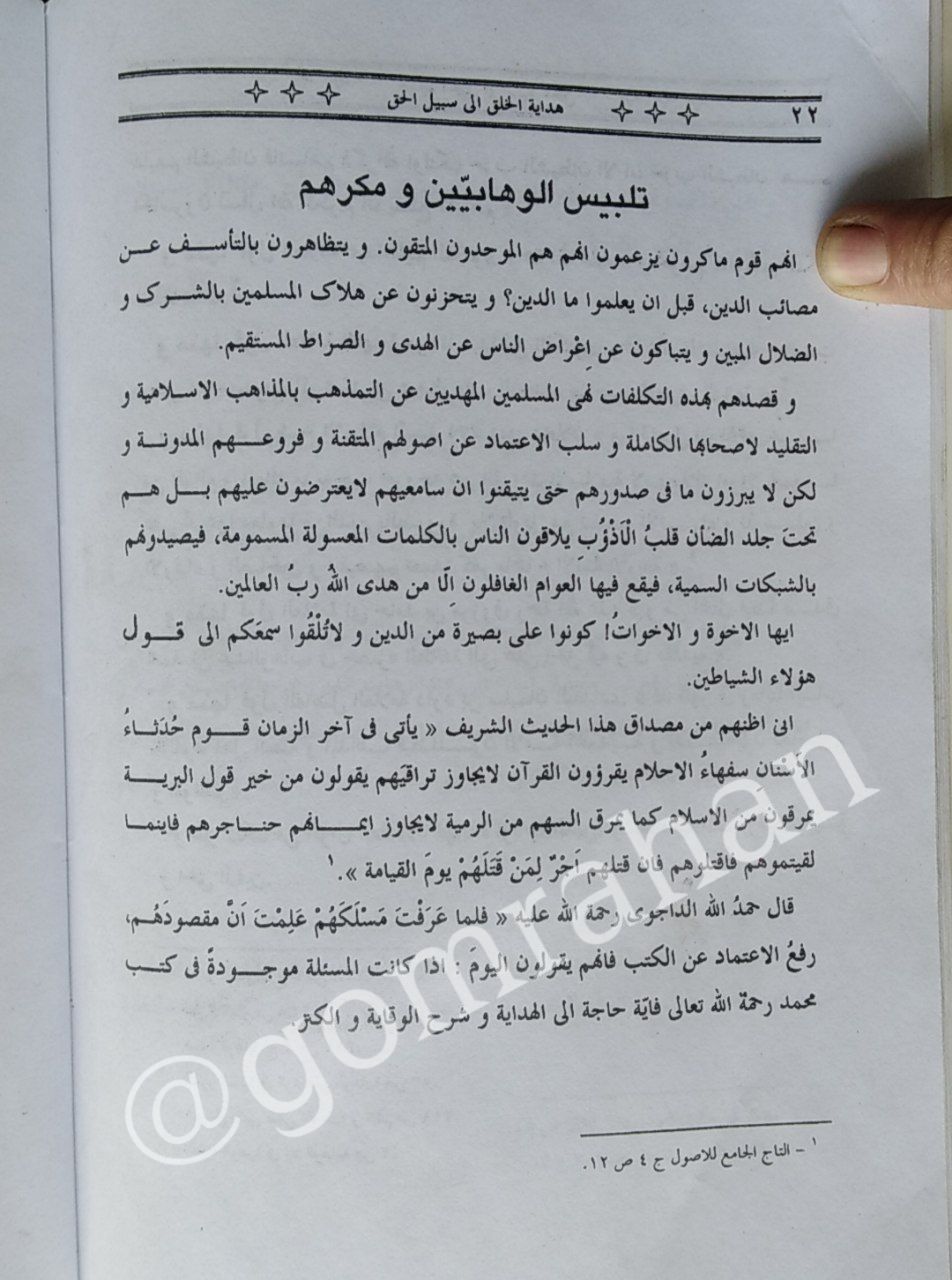 ٢٢ هداية الخلق الى سبيل الحق
تلبيس الوهابيّين و مكرهم
انهم قوم ماكرون يزعمون انهم هم الموحدون المتقون. و يتظاهرون بالتأسف عن
مصائب الدين، قبل ان يعلموا ما الدين؟ و يتحزنون عن هلاك المسلمين بالشرك و
الضلال المبين و يتباكون عن اِغْراض الناس عن الهدى و الصراط المستقيم.
و قصدهم بهذه التكلفات نهى المسلمين المهديين عن التمذهب بالمذاهب الاسلامية و
التقليد لاصحابها الكاملة و سلب الاعتماد عن اصولهم المتقنة و فروعهم المدونة و
لكن لا يبرزون ما فى صدورهم حتى يتيقنوا ان سامعيهم لايعترضون عليهم بل هم
تحتَ جلد الضأن قلبُ الْاَذْؤُبِ يلاقون الناس بالكلمات المعسولة المسمومة، فيصيدونهم
بالشبكات السمية، فيقع فيها العوام الغافلون اِلّا من هدى اللهُ ربُ العالمين.
ايها الاخوة و الاخواتُ! كونوا على بصيرة من الدين و لاتُلْقُوا سمعَكم الى قول
هؤلاء الشياطين.
انى اظنهم من مصداق هذا الحديث الشريف « يأتى فى آخر الزمان قوم حُدَثاءُ
الاَسْنانِ سفهاءُ الاحلام يقرؤون القرآن لايجاوز تراقيَهم يقولون من خير قول البرية
يمرقون من الاسلام كما يمرق السهم من الرمية لايجاوز ايمانهم حناجرهم فاينما
لقيتموهم فاقتلوهم فان قتلهم اَجْرٌ لِمَنْ قَتَلَهُمْ يومَ القيامة ».١
قال حمدُ الله الداجوى رحمة الله عليه « فلما عَرَفْتَ مَسْلَكَهُمْ عَلِمْتَ اَنَّ مقصودَهُم،
رفعُ الاعتماد عن الكتب فانهم يقولون اليومَ : اذا كانت المسئلة موجودةً فى كتب
محمد رحمة الله تعالى فايّة حاجة الى الهداية و شرح الوقاية و الكنز.
١ - التاج الجامع للاصول ج ٤ ص ١٢.
@gomrahan